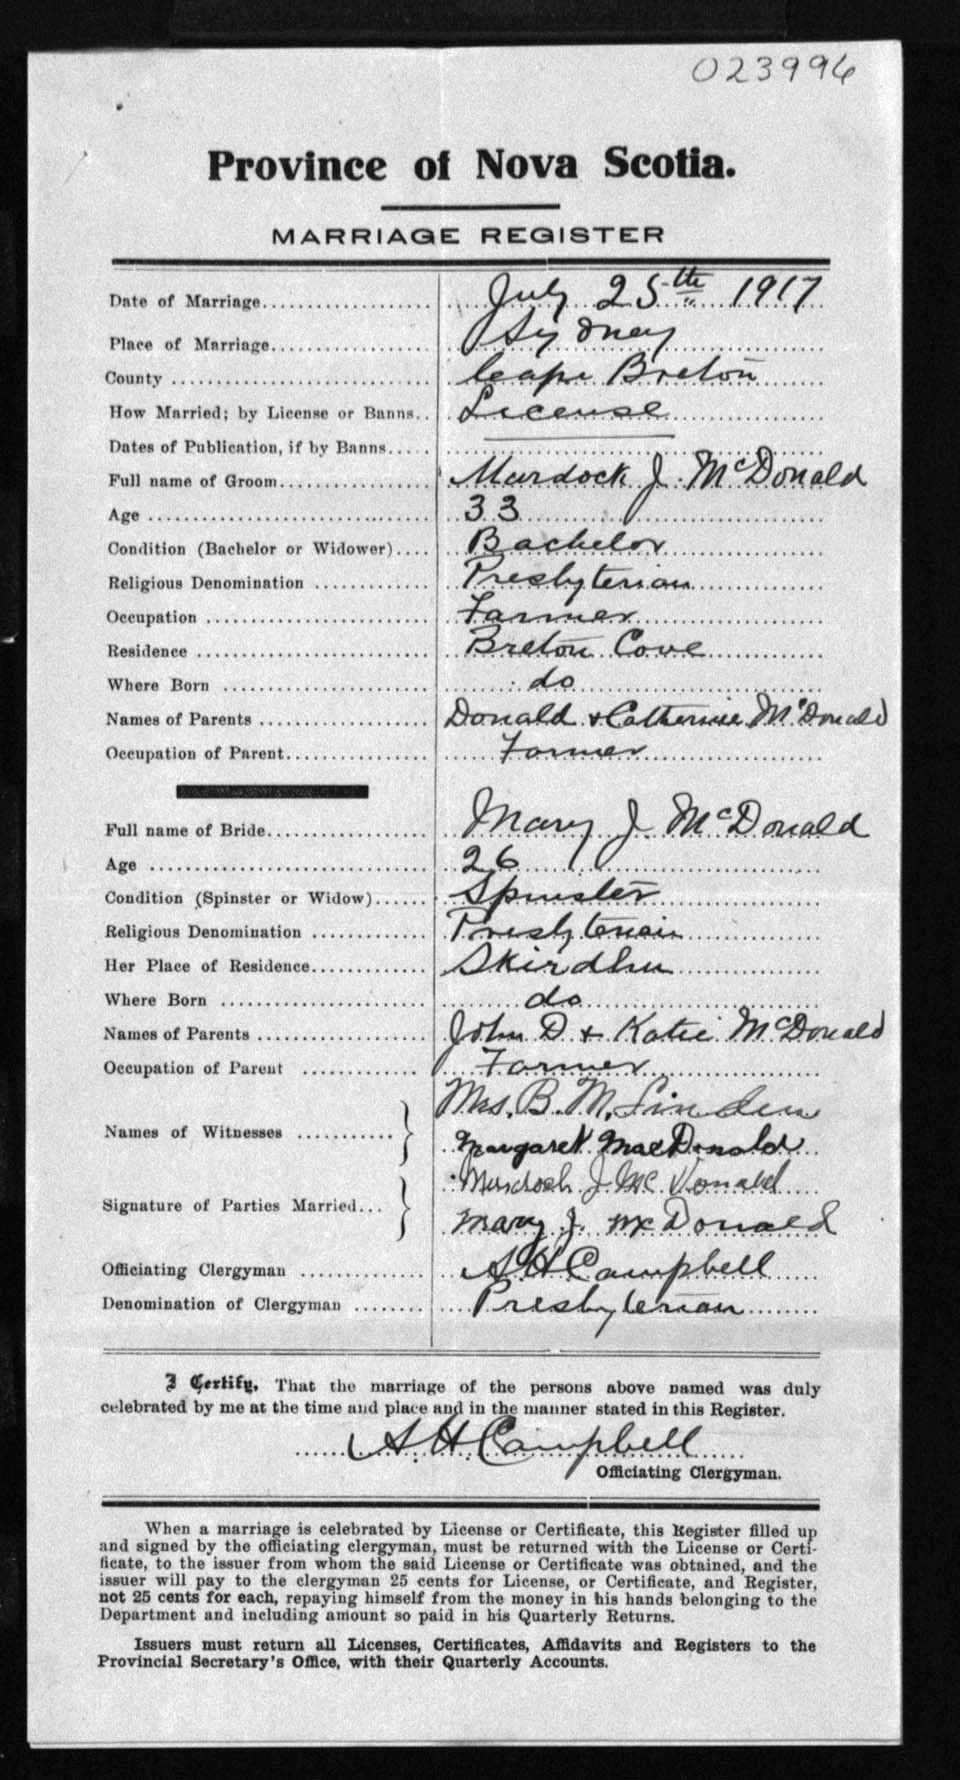 023996
Province of Nova Scotia.
MARRIAGE REGISTER
Date of Marriage July 25th 1917
Place of Marriage Sydney
County Cape Breton
How Married; by License or Banns License
Dates of Publication, if by Banns
Full name of Groom Murdock J. McDonald
Age 33
Condition (Bachelor or Widower) Bachelor
Religious Denomination Presbyterian
Occupation Farmer
Residence Breton Cove
Where Born do
Names of Parents Donald + Catherine McDonald
Occupation of Parent Farmer
Full name of Bride Mary J. McDonald
Age 26
Condition (Spinster or Widow) Spinster
Religious Denomination Presbyterian
Her Place of Residence Skirdhu
Where Born do
Names of Parents John D + Katie McDonald
Occupation of Parent Farmer
Mrs. B. M.
Names of Witnesses
Margaret MacDonald
Murdoch J Mc Donald
Signature of Parties Married
Mary J. McDonald
Officiating Clergyman A H Campbell
Denomination of Clergyman Presbyterian
I Certify, That the marriage of the persons above named was duly
celebrated by me at the time and place and in the manner stated in this Register.
A. H. Campbell
Officiating Clergyman.
When a marriage is celebrated by License or Certificate, this Register filled up
and signed by the officiating clergyman, must be returned with the License or Certi-
ficate, to the issuer from whom the said License or Certificate was obtained, and the
issuer will pay to the clergyman 25 cents for License, or Certificate, and Register,
not 25 cents for each, repaying himself from the money in his hands belonging to the
Department and including amount so paid in his Quarterly Returns.
Issuers must return all Licenses, Certificates, Affidavits and Registers to the
Provincial Secretary's Office, with their Quarterly Accounts.